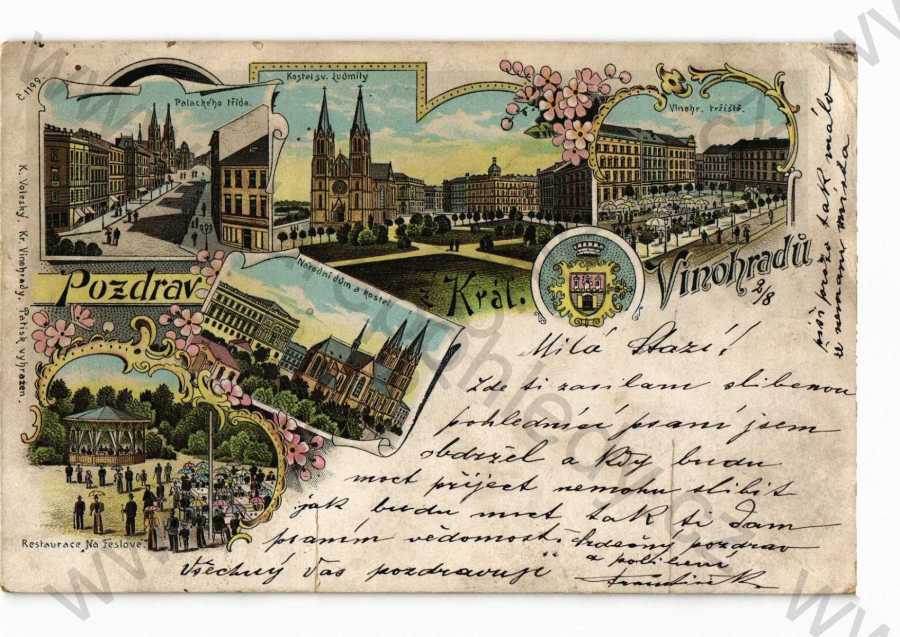 Č. 1199.
Palackého třída.
Kostel sv. Ludmily
Vinohr. tržiště.
Pozdrav
z Král. Vinohradů
2/8
Národní dům a kostel.
Restaurace Na Feslově.
K. Voleský, Kr. Vinohrady. Patisk vyhrazen.
Milá Stazi!
Zde ti zasilam slibenou
pohlednici psaní jsem
obdržel a kdy budu
moct přiject nemohu slibit
jak budu moct tak ti dam
psanim vědomosti srdečný pozdrav
a polibení
Všechny Vás pozdravuji
píši tak málo
že nemam místa